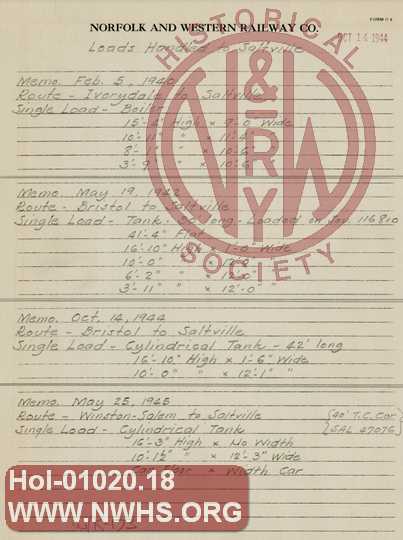 FORM G 6
NORFOLK AND WESTERN RAILWAY CO.
OCT 14 1944
Loads Handled to Saltville
Memo. Feb. 5, 1940
Route - Ivorydale to Saltville
Single Load - Boiler
15'-4" High x 9'-0" Wide
10'-11" " x 11'-4"
8'- " x 10'-6"
3'-9 " x 10'-6"
Memo. May 19, 1942
Route - Bristol to Saltville
Single Load - Tank - long - Loaded on Sou. 116810
41'-4" Flat
16'-10" High x 1'-0" Wide
10'-0" " x
6'-2" " x 12'-0"
3'-11" " x 12'-0" "
Memo. Oct. 14, 1944
Route - Bristol to Saltville
Single Load - Cylindrical Tank - 42' long
16'-10" High x 1'-6" Wide
10'-0" " x 12'-1" "
Memo. May 25, 1945
Route - Winston-Salem to Saltville {40' T.C. Car}
Single Load - Cylindrical Tank {SAL 47076}
16'-3" High x No Width
10'-1½" " x 12'-3" Wide
Car Floor x Width Car
HISTORICAL
N&W RY
SOCIETY
Hol-01020.18
www.NWHS.ORG